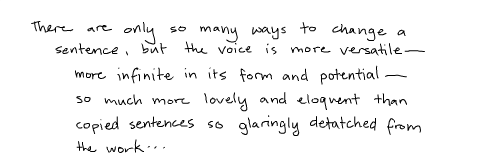 There are only so many ways to change a
sentence, but the voice is more versatile—
more infinite in its form and potential—
so much more lovely and eloquent than
copied sentences so glaringly detatched from
the work...